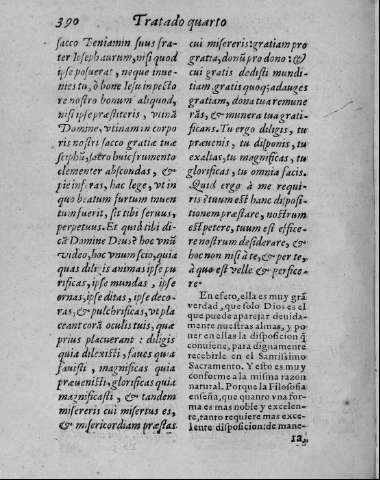 390 Tratado quarto
sacco Beniamin suus fra-
ter Ioseph aurum, nisi quod
ipse posuerat, neque inue-
nies tu, ò bone Iesu in pecto
re nostro bonum aliquod,
nisi ipse præstiteris, vtinã
Domine, vtinam in corpo
ris nostri sacco gratiæ tuæ
sciphũ, sacro huic frumento
clementer abscondas, &
pie inseras, hac lege, vt in
quo beatum furtum inuen
tum fuerit, sit tibi seruus,
perpetuus. Et quid tibi di-
cã Domine Deus? hoc vnũ
video, hoc vnum scio, quia
quas diligis animas ipse pu
rificas, ipse mundas, ipse
ornas, ipse ditas, ipse deco-
ras, & pulchrificas, vt pla
ceant corã oculis tuis, quæ
prius placuerant: diligis
quia dilexisti, faues quia
fauisti, magnificas quia
præuenisti, glorificas quia
magnificasti, & tandem
misereris cui misertus es,
& misericordiam præstas
cui misereris: gratiam pro
gratia, donũ pro dono: vt
cui gratis dedisti mundi-
tiam gratis quoq; adauges
gratiam, dona tua remune
rãs, & munera tua grati-
ficans. Tu ergo diligis, tu
præuenis, tu disponis, tu
exaltas, tu magnificas, tu
glorificas, tu omnia facis.
Quid ergo à me requi-
ris? tuum est hanc disposi-
tionem præstare, nostrum
est petere, tuum est effice-
re nostrum desiderare, &
hoc non nisi à te, & per te,
à quo est velle & perfice-
re.
En efeto, ella es muy grã
verdad, que solo Dios es el
que puede aparejar deuida-
mente nuestras almas, y po
ner en ellas la disposicion q̃
conuiene, para dignamente
recebirle en el Santissimo
Sacramento. Y esto es muy
conforme a la misma razon
natural. Porque la Filosofia
enseña, que quanto vna for-
ma es mas noble y excelen-
te, tanto requiere mas exce-
lente disposicion: de mane-
ra,